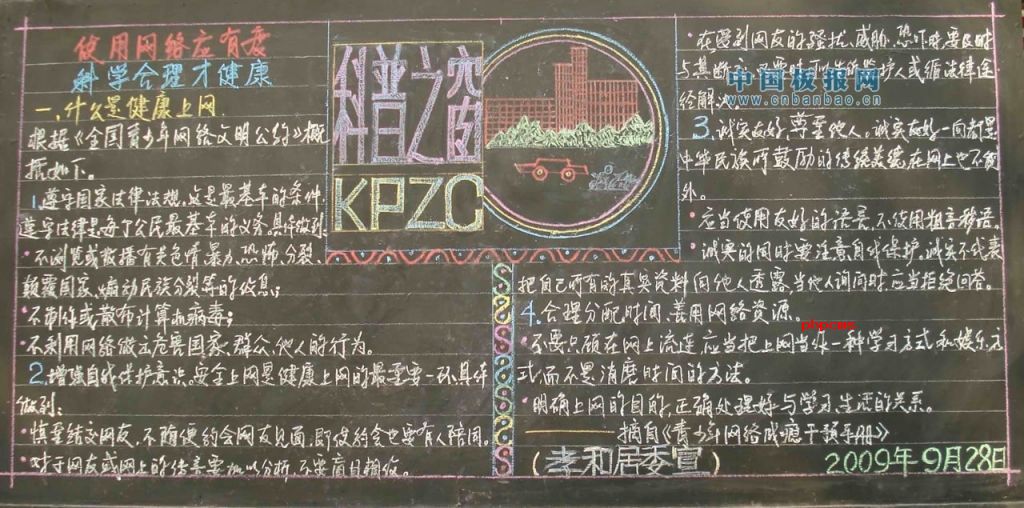 使用网络应有度
科学合理才健康
一.什么是健康上网
根据《全国青少年网络文明公约》概
括如下。
1.遵守国家法律法规,这是最基本的条件,
遵守法律是每个公民最基本的义务.具体做到:
·不浏览或散播有关色情.暴力.恐怖.分裂.
颠覆国家.煽动民族分裂等的信息;
·不制作或散布计算机病毒;
·不利用网络做危害国家.群众.他人的行为。
2.增强自我保护意识。安全上网是健康上网的最重要一环.具体
做到:
·慎重结交网友,不随便约会网友见面,即使约会也要有人陪同。
·对于网友或网上的传言要加以分析,不要盲目相信。
科普之窗
KPZC
·在受到网友的骚扰.威胁.恐吓时要及时
与其断交,必要时可告诉监护人或循法律途
径解决。
中国板报网
www.cnbanbao.cn
3.诚实友好,尊重他人。诚实友好一向都是
中华民族所鼓励的传统美德在网上也不例
外。
·应当使用友好的语言,不使用粗言秽语。
·诚实的同时要注意自我保护。诚实不代表
把自己所有的真实资料向他人透露.当他人询问时.应当拒绝回答。
4.合理分配时间,善用网络资源。
phpcms
·不要只顾在网上流连,应当把上网当作一种学习方式和娱乐方
式,而不是消磨时间的方法。
·明确上网的目的,正确处理好与学习.生活的关系。
——摘自《青少年网络成瘾干预手册》
(孝和居委宣)
2009年9月28日